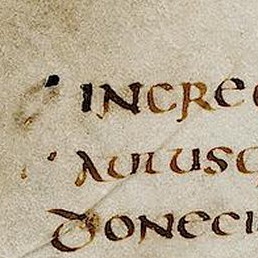 INCREO
AUULUSC
DONECI